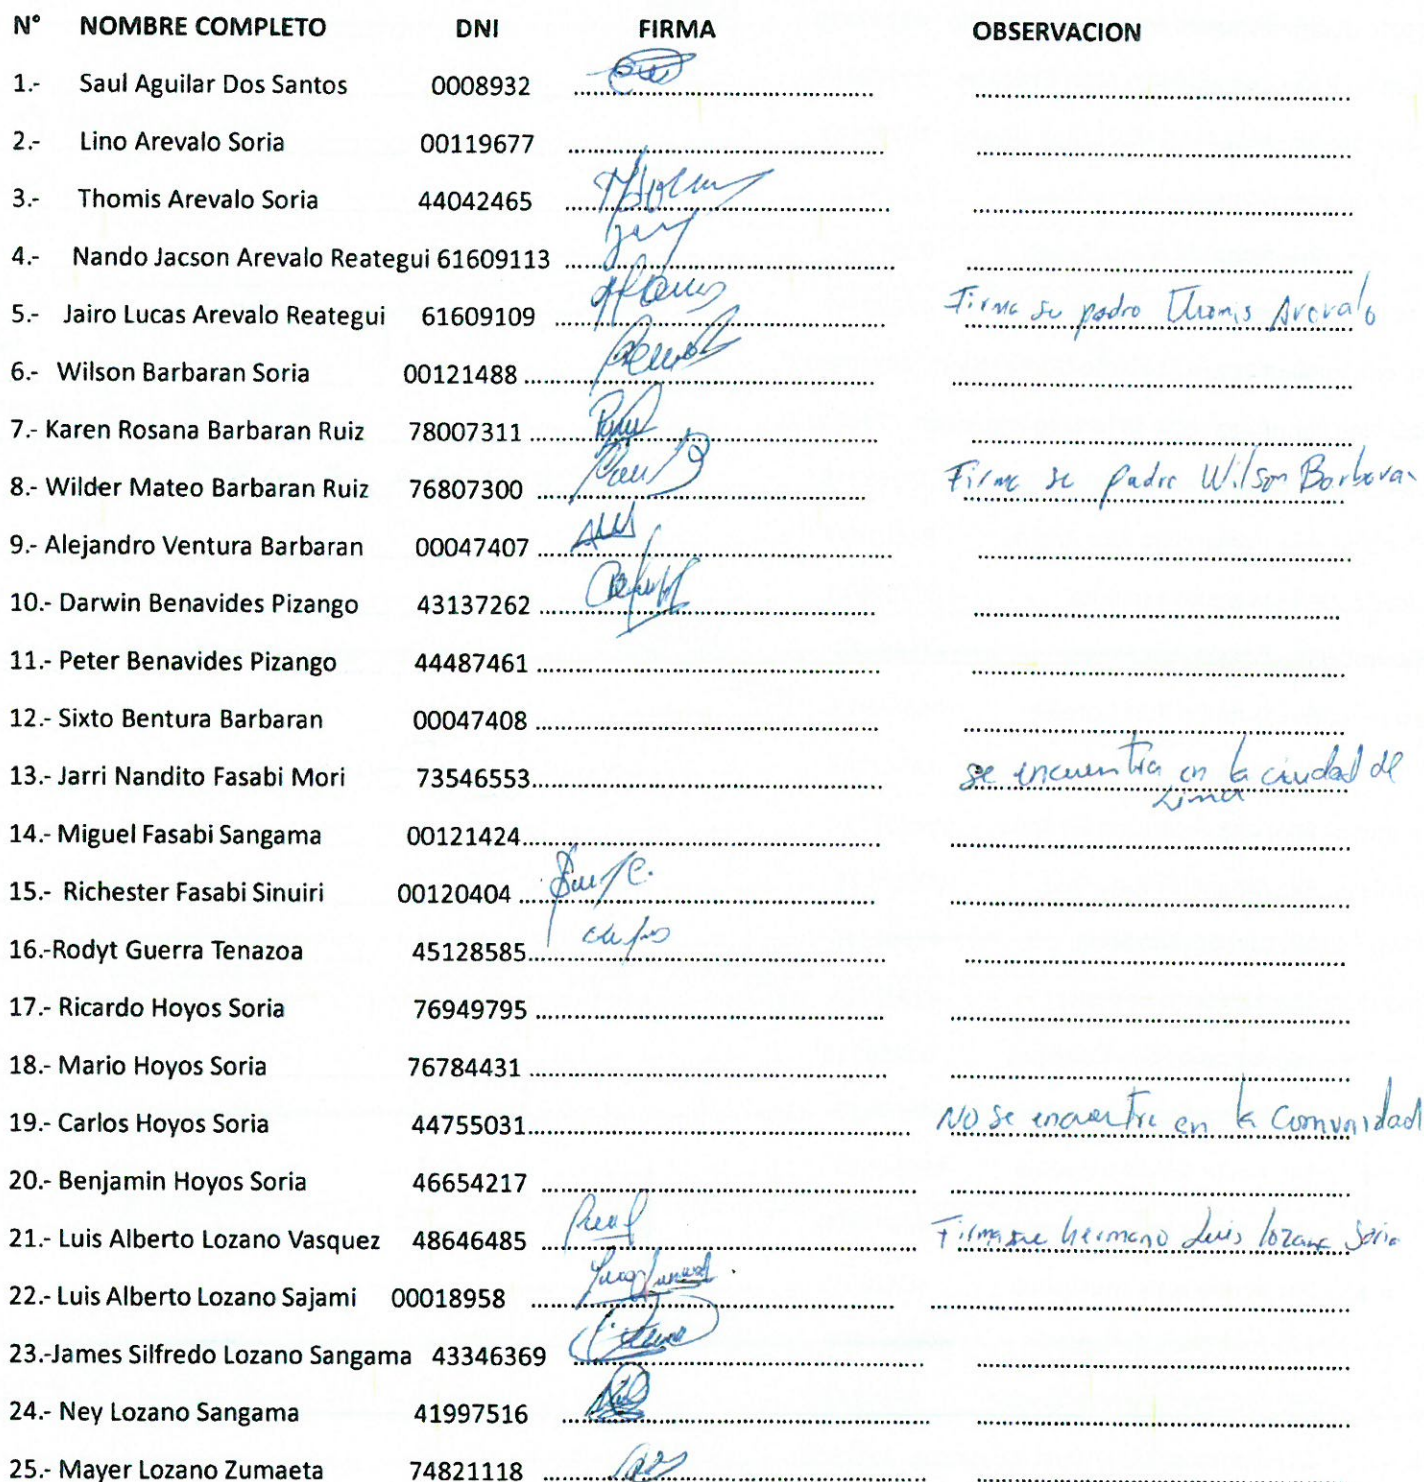 N° NOMBRE COMPLETO DNI FIRMA OBSERVACION
1.- Saul Aguilar Dos Santos 0008932
2.- Lino Arevalo Soria 00119677
3.- Thomis Arevalo Soria 44042465
4.- Nando Jacson Arevalo Reategui 61609113
5.- Jairo Lucas Arevalo Reategui 61609109 Firma su padre Thomis Arevalo
6.- Wilson Barbaran Soria 00121488
7.- Karen Rosana Barbaran Ruiz 78007311
8.- Wilder Mateo Barbaran Ruiz 76807300 Firma su padre Wilson Barbaran
9.- Alejandro Ventura Barbaran 00047407
10.- Darwin Benavides Pizango 43137262
11.- Peter Benavides Pizango 44487461
12.- Sixto Bentura Barbaran 00047408
13.- Jarri Nandito Fasabi Mori 73546553 se encuentra en la ciudad de
Lima
14.- Miguel Fasabi Sangama 00121424
15.- Richester Fasabi Sinuiri 00120404
16.-Rodyt Guerra Tenazoa 45128585
17.- Ricardo Hoyos Soria 76949795
18.- Mario Hoyos Soria 76784431
19.- Carlos Hoyos Soria 44755031 NO se encuentra en la Comunidad
20.- Benjamin Hoyos Soria 46654217
21.- Luis Alberto Lozano Vasquez 48646485 Firma su hermano Luis lozano Soria
22.- Luis Alberto Lozano Sajami 00018958
23.-James Silfredo Lozano Sangama 43346369
24.- Ney Lozano Sangama 41997516
25.- Mayer Lozano Zumaeta 74821118